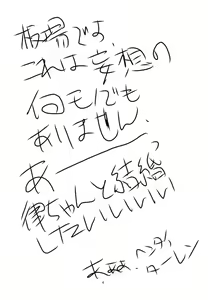 板場です、
これは妄想の
何モノでも
ありません、
あ———
律ちゃんと結婚
したいいいいい
ヘンタイ
ターレン